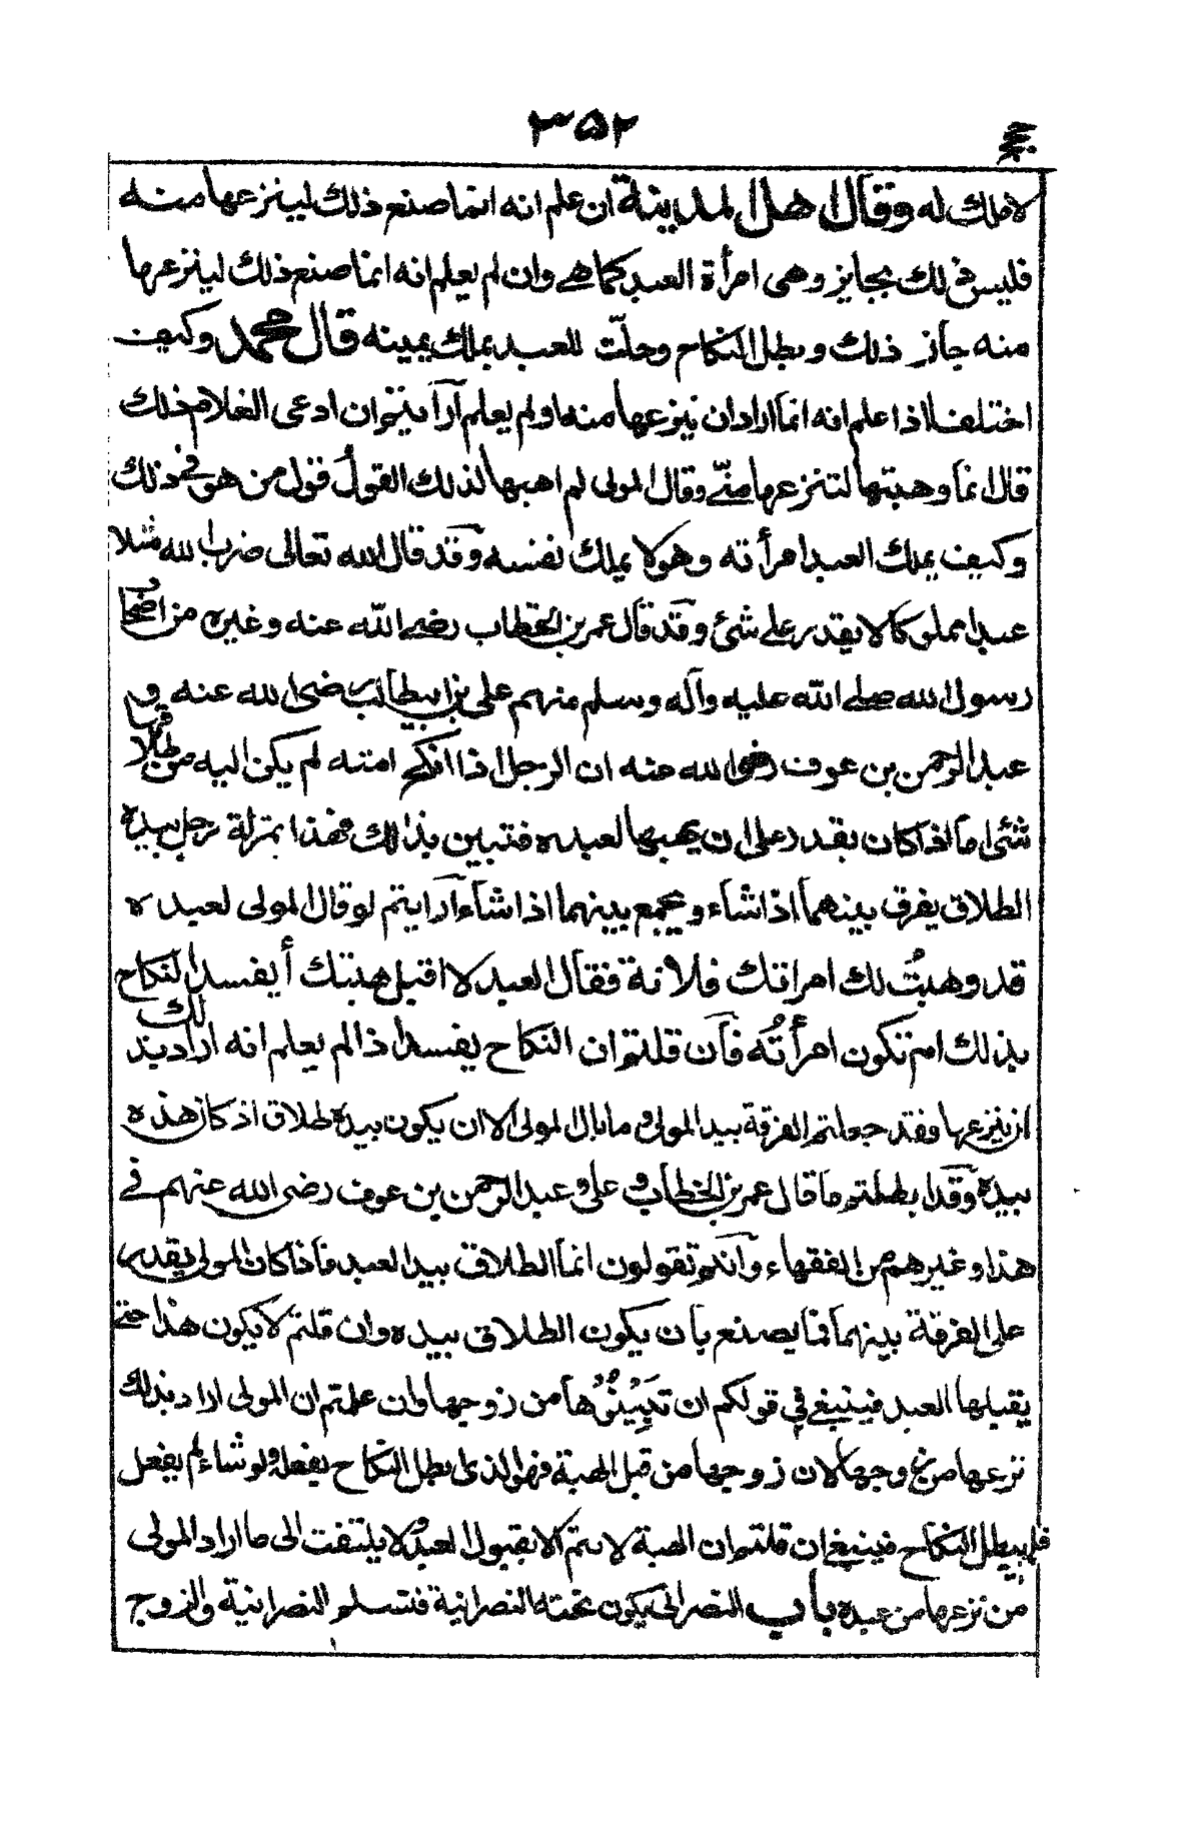 ٣٥٢
لا ملك له وقال اهل المدينة ان علم انه انما صنع ذلك لينزعها منه
فليس ذلك بجايز وهى امرأة العبد كما هي وان لم يعلم انه انما صنع ذلك لينزعها
منه جاز ذلك وبطل النكاح وحلّت للعبد بملك يمينه قال محمد وكيف
اختلف اذا علم انه انما اراد ان ينزعها منه او لم يعلم أرأيتم ان ادعى الغلام ذلك
قال انما وهبتها لتنزعها منّي وقال المولى لم اهبها لذلك القول قول من هو في ذلك
وكيف يملك العبد امرأته وهو لا يملك نفسه وقد قال الله تعالى ضرب الله مثلا
عبدا مملوكا لا يقدر على شئ وقد قال عمر بن الخطاب رضي الله عنه وغيره من اصحاب
رسول الله صلى الله عليه وآله وسلم منهم على بن ابيطالب رضى الله عنه و
عبد الرحمن بن عوف رضى الله عنه ان الرجل اذا انكح امته لم يكن اليه من طلاقها
شئ اما اذا كان يقدر على ان يهبها لعبده فتبين بذلك فهذا بمنزلة رجل بيده
الطلاق يفرق بينهما اذا شاء ويجمع بينهما اذا شاء أرايتم لو قال المولى لعبده
قد وهبتُ لك امراتك فلانة فقال العبد لا اقبل هبتك أيفسد النكاح
بذلك ام تكون امرأتُه فان قلتم ان النكاح يفسد اذا لم يعلم انه اراد بذلك
ان ينزعها فقد جعلتم الفرقة بيد المولى وما بال المولى الا ان يكون بيده طلاق اذ كان هذه
بيده وقد ابطلتم ما قال عمر بن الخطاب وعلى وعبد الرحمن بن عوف رضى الله عنهم في
هذا وغيرهم من الفقهاء وانتم تقولون انما الطلاق بيد العبد فاذا كان المولى يقدر
على الفرقة بينهما فما يصنع بان يكون الطلاق بيده وان قلتم لا يكون هذا حتى
يقبلها العبد فينبغي في قولكم ان تبينُوها من زوجها وان علمتم ان المولى اراد بذلك
نزعها من زوجها لان زوجها من قبل الهبة فهو الذى ابطل النكاح بفعله ولو شاء لم يفعل
فلم يبطل النكاح فينبغي ان قلتم ان الهبة لا تتم الا بقبول العبد ولا يلتفت الى ما اراد المولى
من نزعها من عبده باب النصرانى يكون تحته النصرانية فتسلم النصرانية والزوج